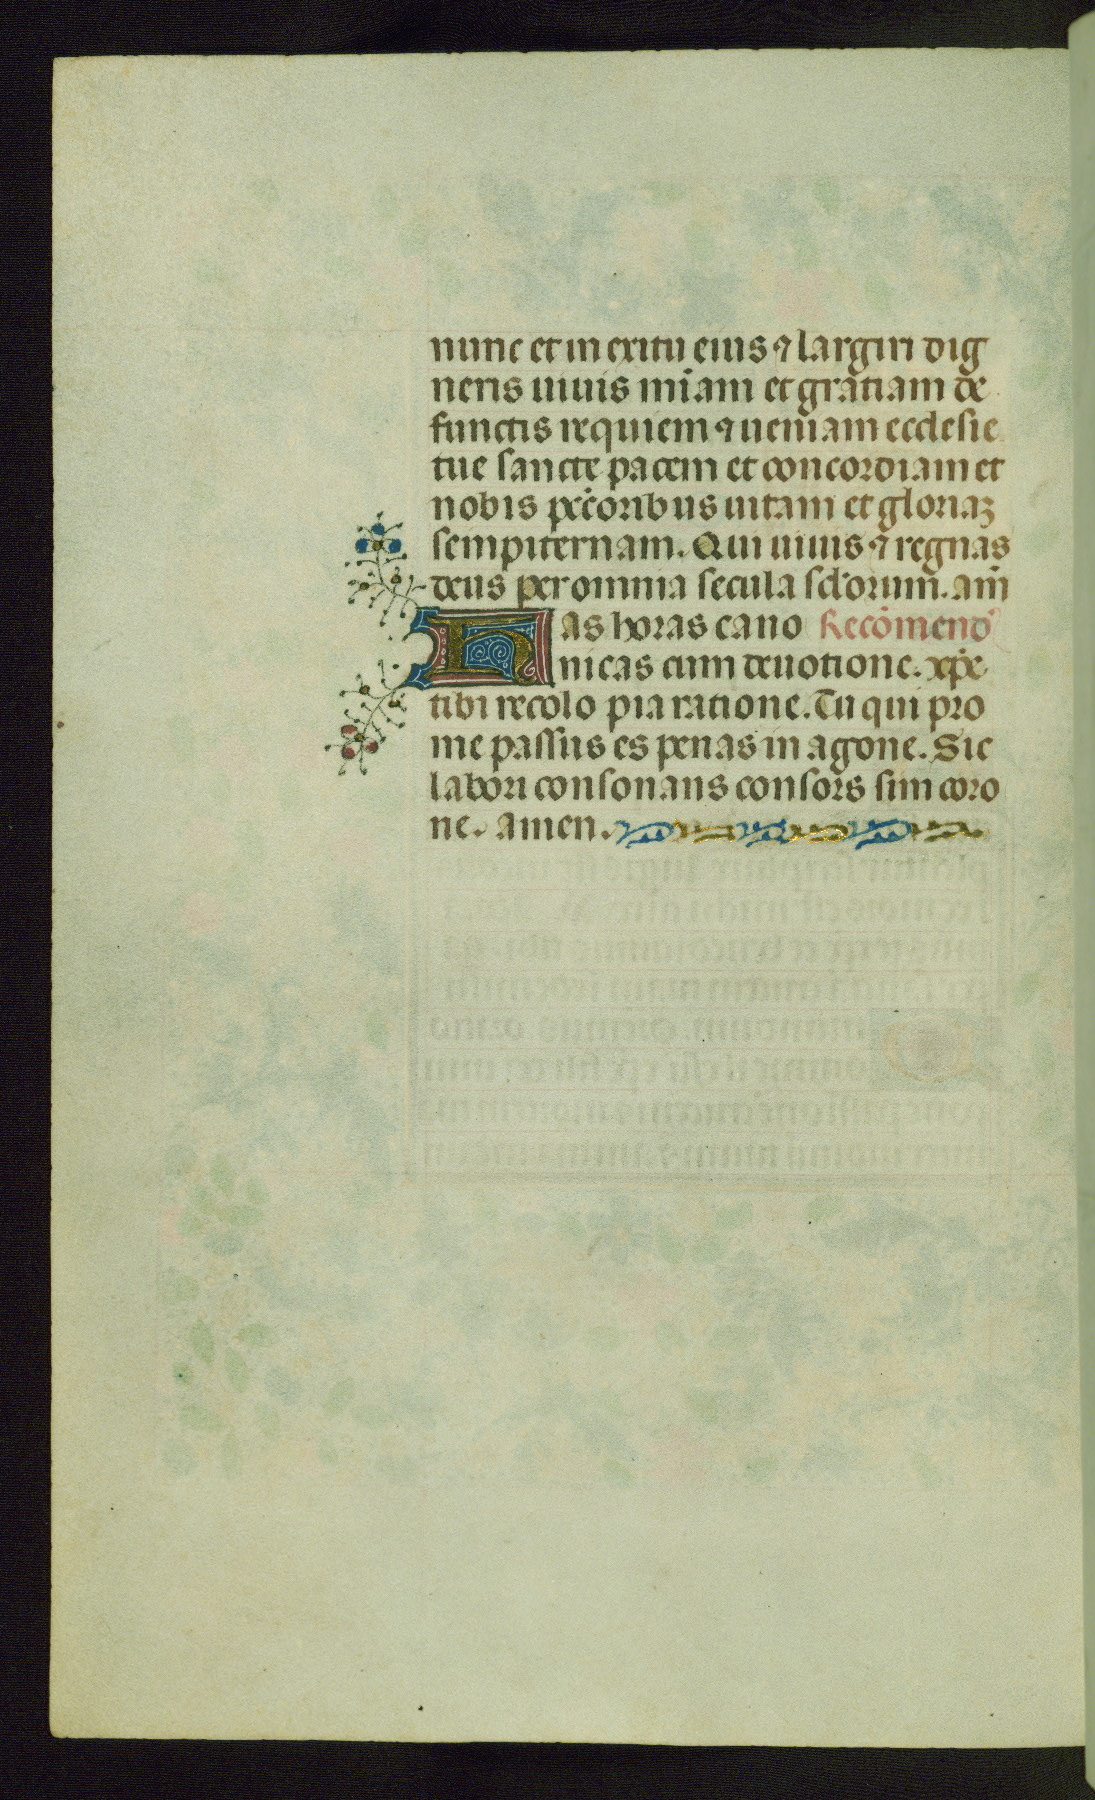 nunc et in exitu eius ⁊ largiri dig
neris uiuis mīam et gratiam de
functis requiem ⁊ ueniam ecclesie
tue sancte pacem et concordiam et
nobis pc̄coribus uitam et gloriaꝫ
sempiternam. Qui uiuis ⁊ regnas
deus per omnia secula sc̄lorum. am̄
Has horas cano Recōmend̉
nicas cum deuotione. xp̄e
tibi recolo pia ratione. Tu qui pro
me passus es penas in agone. Sic
labori consonans consors sim coro
ne. amen.